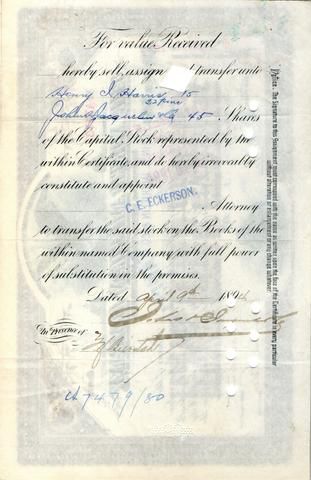 For value Received
hereby sell, assign and transfer unto
Henry I. Harris 15
22 Pine
45 Shares
of the Capital Stock represented by the
within Certificate, and do hereby irrevocably
constitute and appoint
C. E. ECKERSON.
Attorney
to transfer the said stock on the Books of the
within named Company with full power
of substitution in the premises.
Dated April 9th 189
In Presence of
A 7479/80
Notice. The Signature to this Assignment must correspond with the name as written upon the face of the Certificate in every particular
without alteration or enlargement or any change whatever.